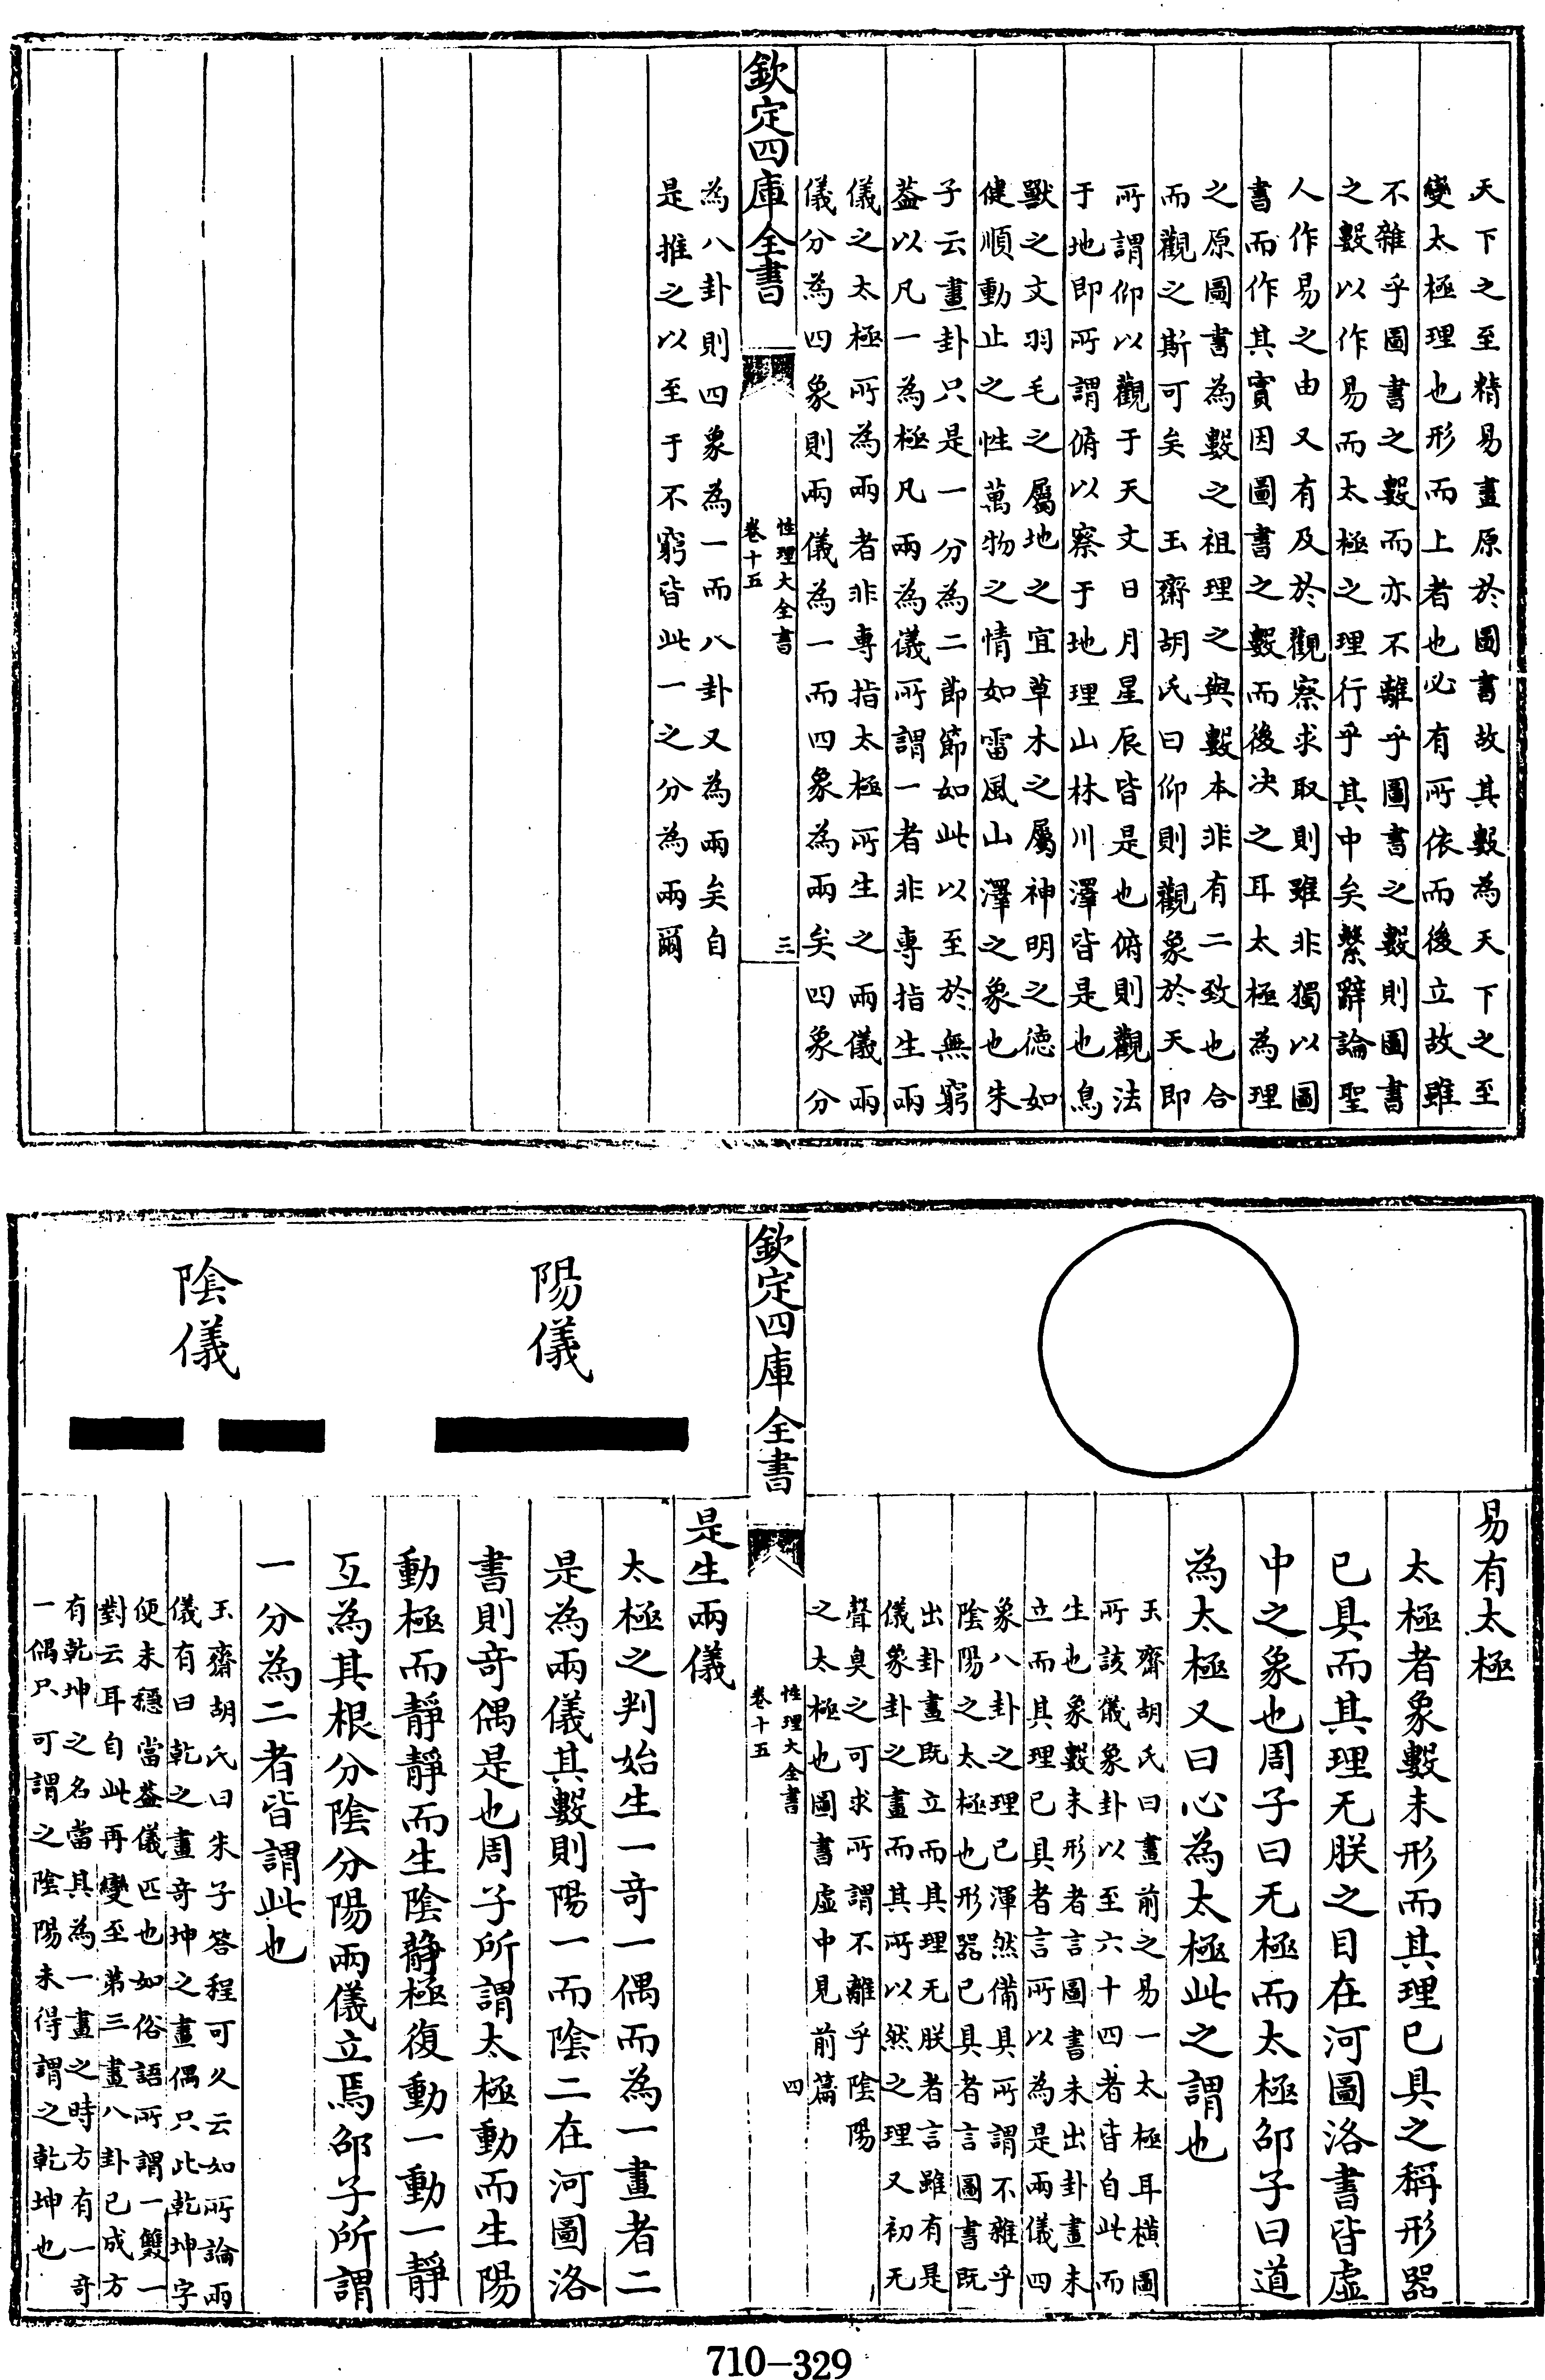 天下之至精易畫原於圖書故其數為天下之至
變太極理也形而上者也必有所依而後立故雖
不雜乎圖書之數而亦不離乎圖書之數則圖書
之數以作易而太極之理行乎其中矣繫辭論聖
人作易之由又有及於觀察求取則雖非獨以圖
書而作其實因圖書之數而後決之耳太極為理
之原圖書為數之祖理之與數本非有二致也合
而觀之斯可矣　玉齋胡氏曰仰則觀象於天即
所謂仰以觀于天文日月星辰皆是也俯則觀法
于地即所謂俯以察于地理山林川澤皆是也鳥
獸之文羽毛之屬地之宜草木之屬神明之德如
健順動止之性萬物之情如雷風山澤之象也朱
子云畫卦只是一分為二節節如此以至於無窮
葢以凡一為極凡兩為儀所謂一者非專指生兩
儀之太極所為兩者非專指太極所生之兩儀兩
儀分為四象則兩儀為一而四象為兩矣四象分
欽定四庫全書
性理大全書
卷十五
三
為八卦則四象為一而八卦又為兩矣自
是推之以至于不窮皆此一之分為兩爾
易有太極
太極者象數未形而其理已具之稱形器
已具而其理无朕之目在河圖洛書皆虛
中之象也周子曰无極而太極邵子曰道
為太極又曰心為太極此之謂也
玉齋胡氏曰畫前之易一太極耳橫圖
所該儀象卦以至六十四者皆自此而
生也象數未形者言圖書未出卦畫未
立而其理已具者言所以為是兩儀四
象八卦之理已渾然備具所謂不雜乎
陰陽之太極也形器已具者言圖書既
出卦畫既立而其理无朕者言雖有是
儀象卦之畫而其所以然之理又初无
聲臭之可求所謂不離乎陰陽
之太極也圖書虛中見前篇
欽定四庫全書
性理大全書
卷十五
四
陽儀
陰儀
是生兩儀
太極之判始生一奇一偶而為一畫者二
是為兩儀其數則陽一而陰二在河圖洛
書則奇偶是也周子所謂太極動而生陽
動極而靜靜而生陰靜極復動一動一靜
互為其根分陰分陽兩儀立焉邵子所謂
一分為二者皆謂此也
玉齋胡氏曰朱子答程可久云如所論兩
儀有曰乾之畫奇坤之畫偶只此乾坤字
便未穩當葢儀匹也如俗語所謂一雙一
對云耳自此再變至第三畫八卦已成方
有乾坤之名當其為一畫之時方有一奇
一偶只可謂之陰陽未得謂之乾坤也
710-329